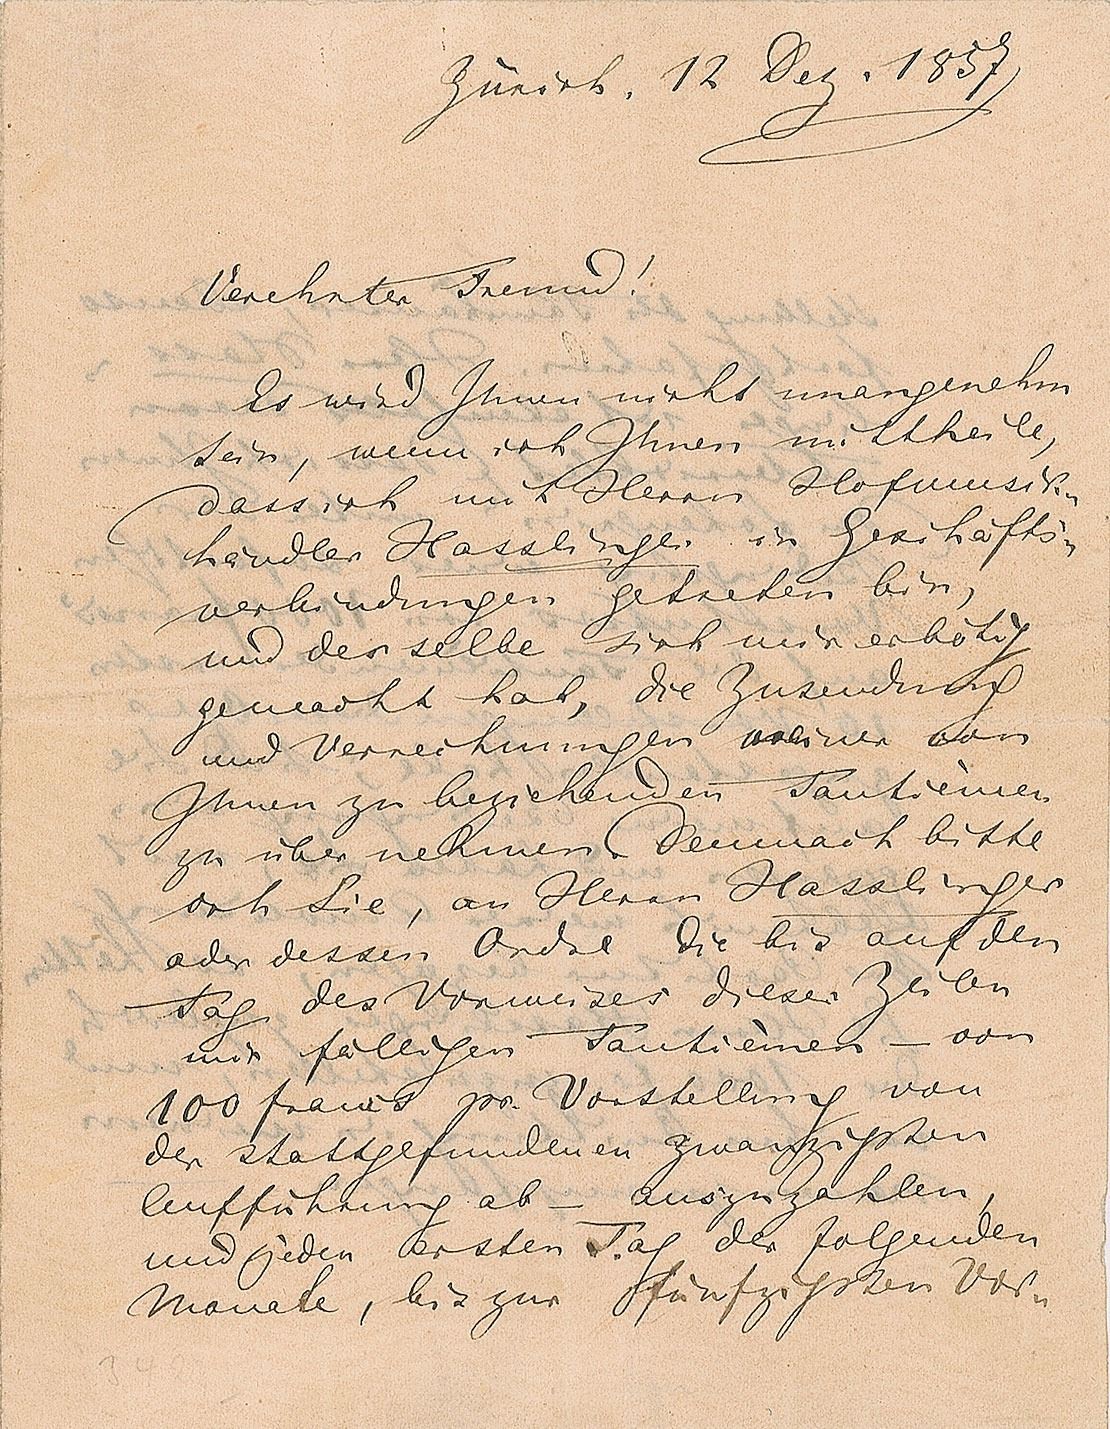 Zürich. 12 Dez. 1857
Verehrter Freund!
Es wird Ihnen nicht unangenehm
sein, wenn ich Ihnen mittheile,
dass ich mit Herrn Hofmusik-
händler Hasslinger in Geschäfts-
verbindungen getreten bin,
und derselbe sich mir erbötig
gemacht hat, die Zusendung
und Verrechnungen meiner von
Ihnen zu beziehenden Tantièmen
zu übernehmen. Demnach bitte
ich Sie, an Herrn Hasslinger
oder dessen Ordre die bis auf den
Tag des Vorweises dieser Zeilen
mir fälligen Tantièmen – von
100 francs pr. Vorstellung von
der stattgefundenen zwanzigsten
Aufführung ab – auszuzahlen,
und jeden ersten Tag der folgenden
Monate, bis zur fünfzigsten Vor-